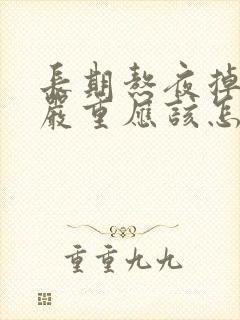 長期熬夜掉
嚴重應該怎
重重九九